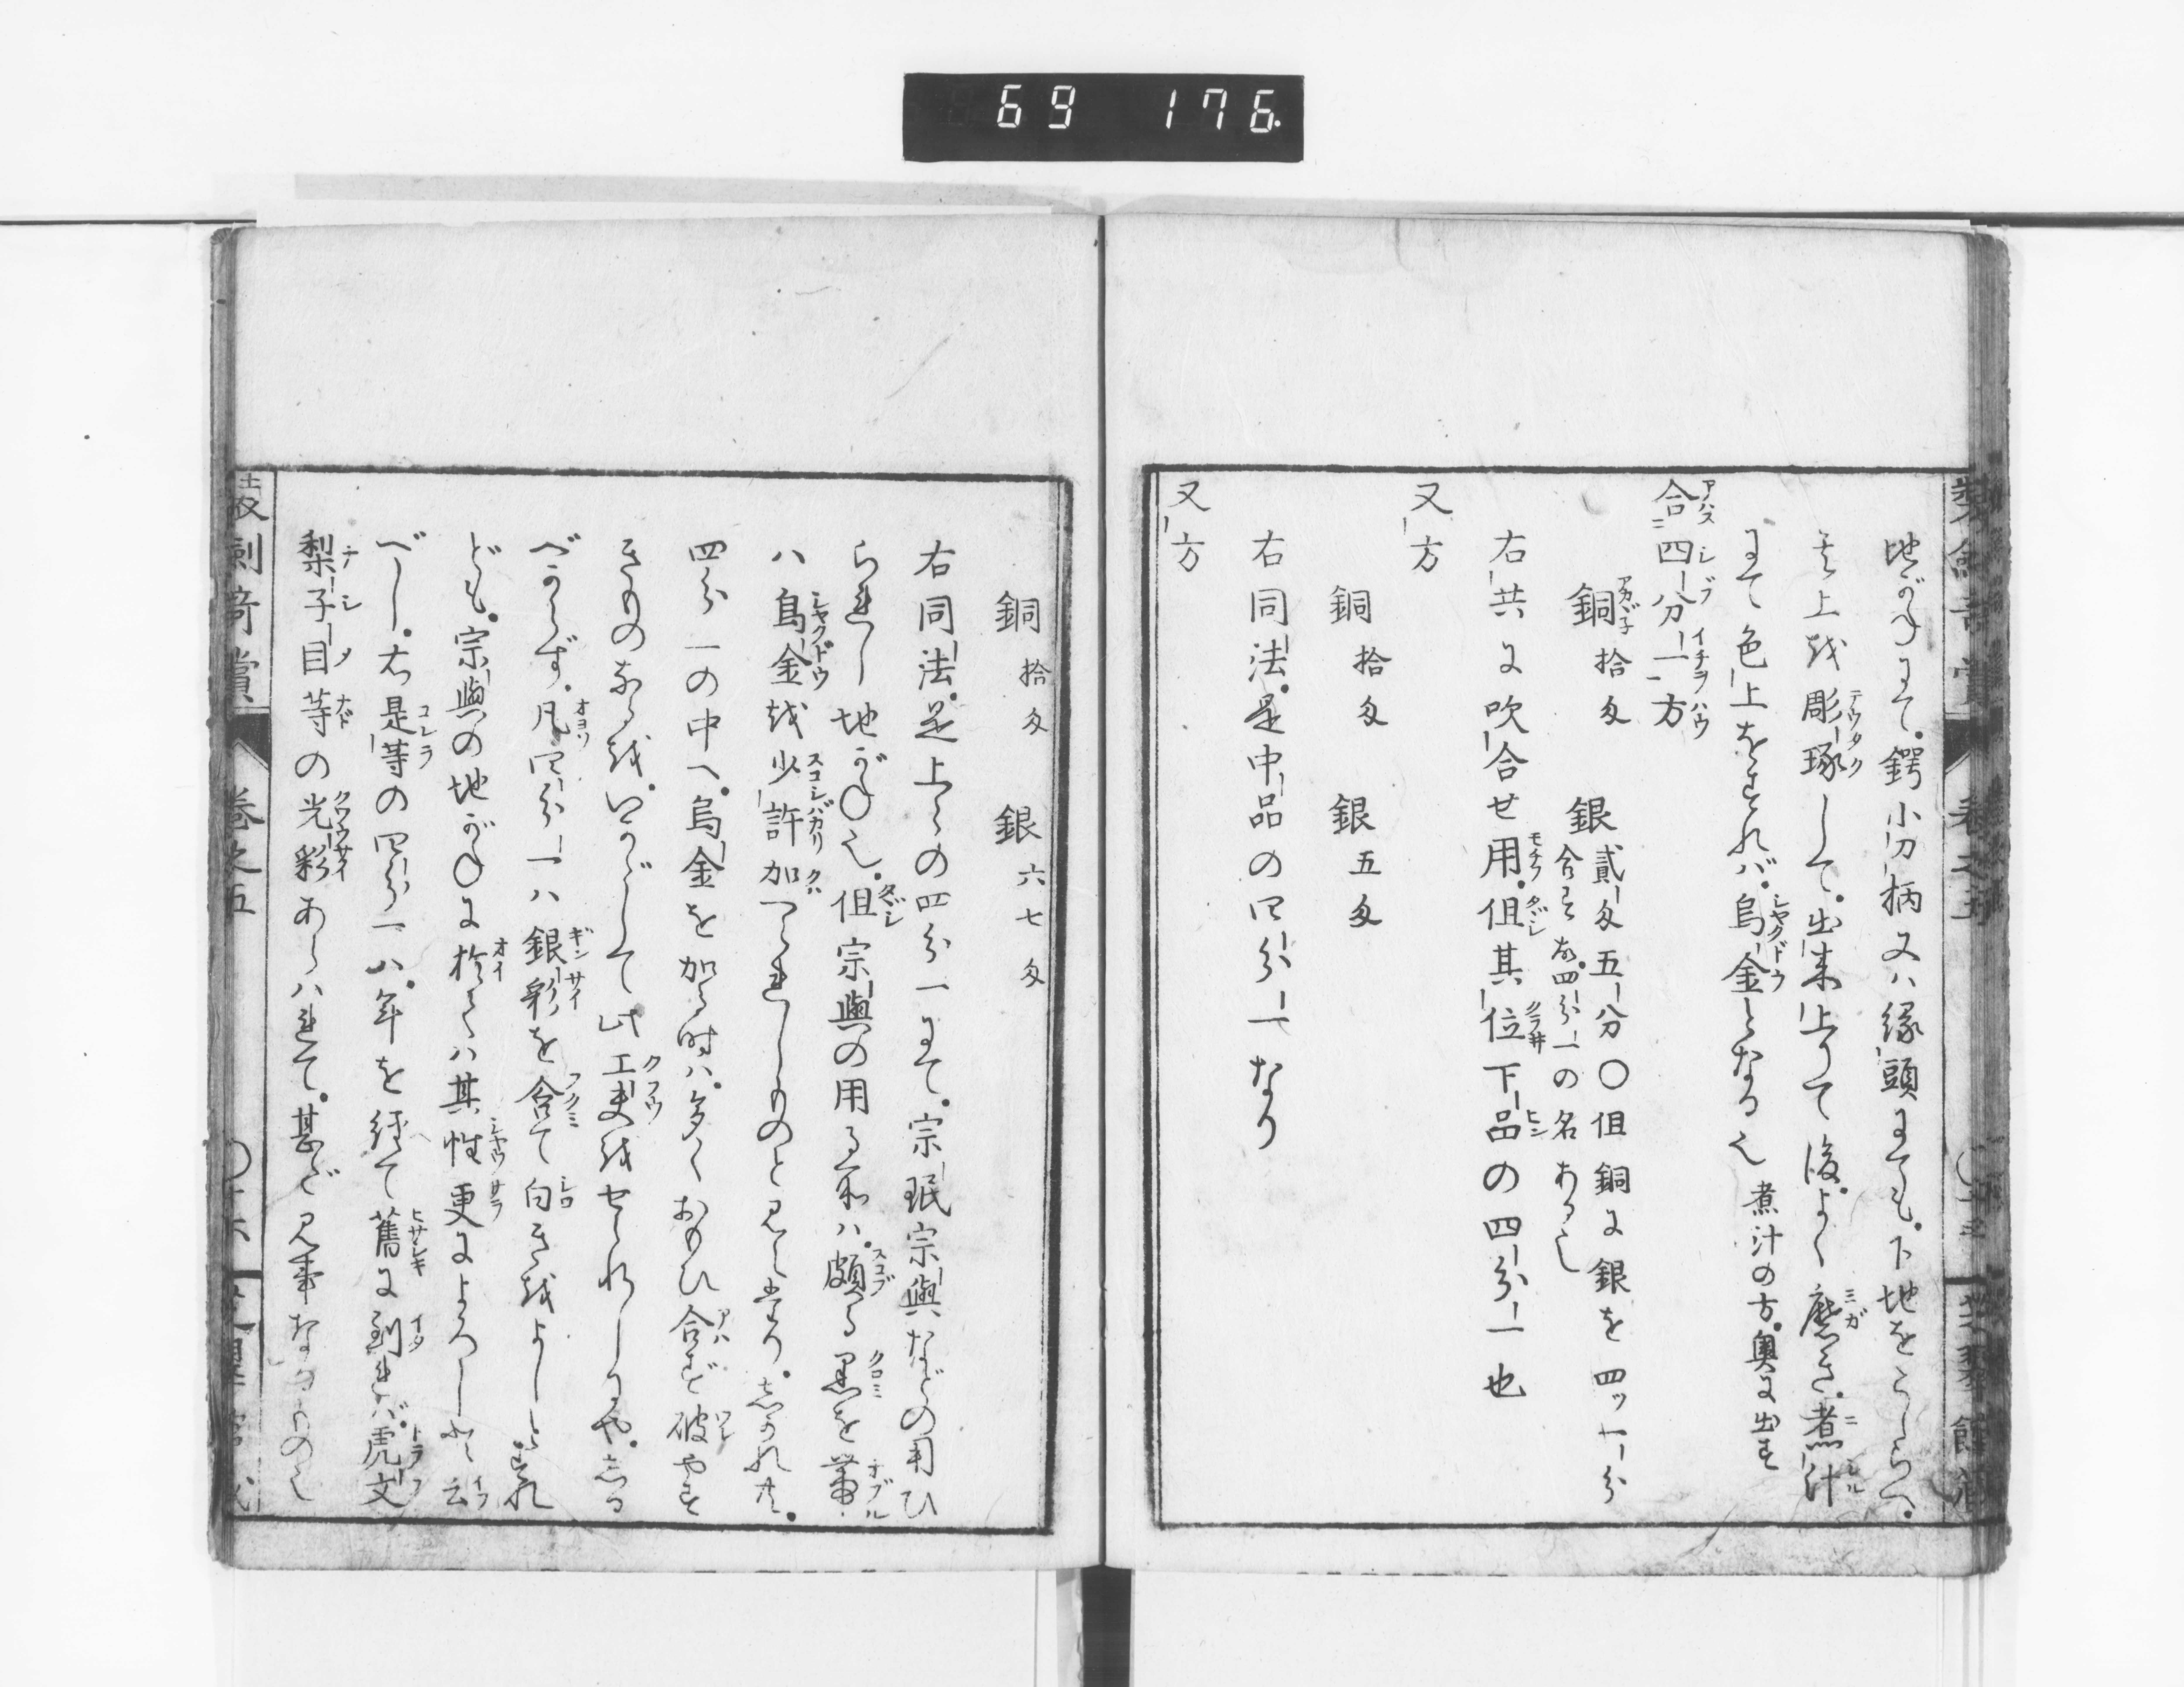 69 176
地がねにて。鍔小刀柄又ハ縁頭にても。下地をこしらへ。
其上を彫琢して。出来上りて後。よく磨き。煮汁
にて色上をすれバ。烏金となる也 煮汁の方。奥に出す
合四分一方
銅拾匁 銀貳匁五分〇但銅に銀を四ッ一分
合す故。四分一の名あるし
右共に吹合せ用。但其位下品の四分一也
又方
銅拾匁 銀五匁
右同法。是中品の四分一なり
又方
銅拾匁 銀六七匁
右同法。是上々の四分一にて。宗珉宗與などの用ひ
られし地がね也。但宗與の用る所ハ。頗る黒を帯。
ハ烏金を少許加へられしものと見へたり。しかれ共。
四分一の中へ。烏金を加る時ハ。多くおのひ合ず破やす
きものなるを。いかゞして此工夫をせられしにや。しる
べからず。凡四分一ハ銀彩を含て白きをよしとすれ
ども。宗與の地がねに於てハ其性更によろしと云
べし。右是等の四分一ハ。年を経て舊に到れバ。虎文
梨子目等の光彩あらハれて。甚ど見事なるもの也
装劍奇賞 巻之五